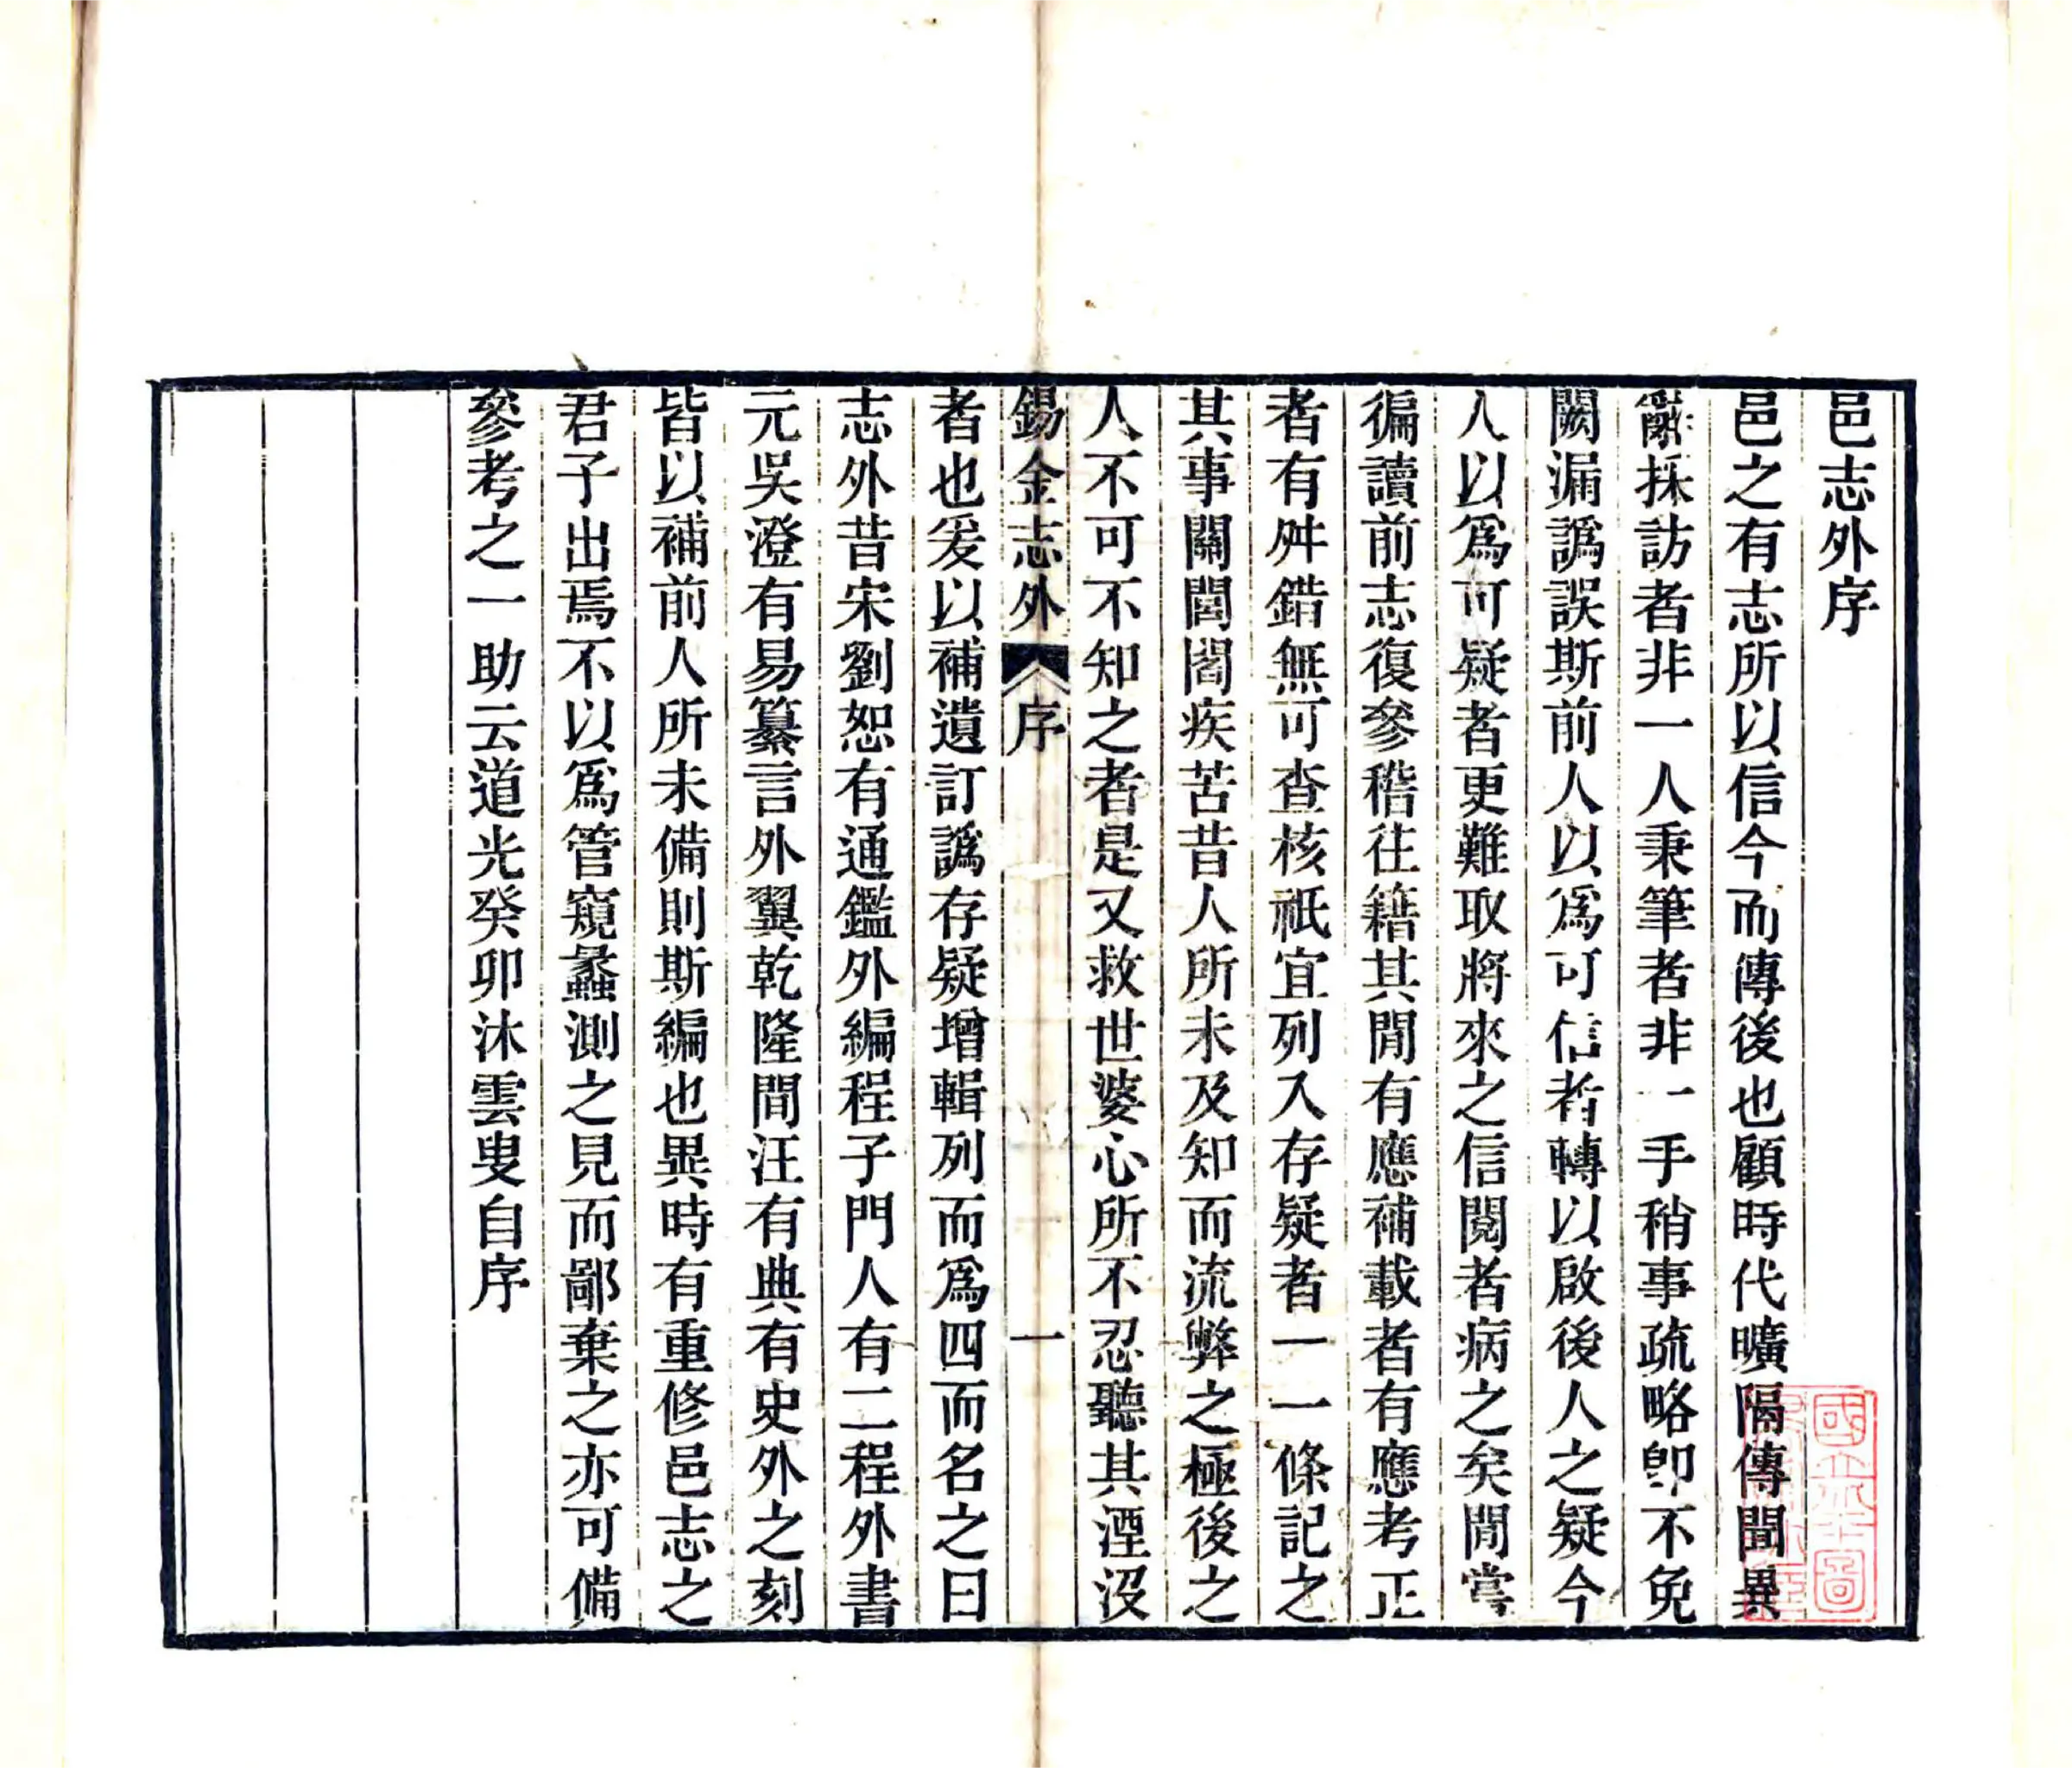 邑志外序
邑之有志所以信今而傳後也顧時代曠隔傳聞異
辭採訪者非一人秉筆者非一手稍事疏略卽不免
闕漏譌誤斯前人以爲可信者轉以啟後人之疑今
人以爲可疑者更難取將來之信閱者病之矣閒嘗
徧讀前志復參稽往籍其閒有應補載者有應考正
者有舛錯無可查核祇宜列入存疑者一一條記之
其事關閭閻疾苦昔人所未及知而流弊之極後之
人不可不知之者是又救世婆心所不忍聽其湮沒
錫金志外 序 一
者也爰以補遺訂譌存疑增輯列而爲四而名之曰
志外昔宋劉恕有通鑑外編程子門人有二程外書
元吳澄有易纂言外翼乾隆間汪有典有史外之刻
皆以補前人所未備則斯編也異時有重修邑志之
君子出焉不以爲管窺蠡測之見而鄙棄之亦可備
參考之一助云道光癸卯沐雲叟自序